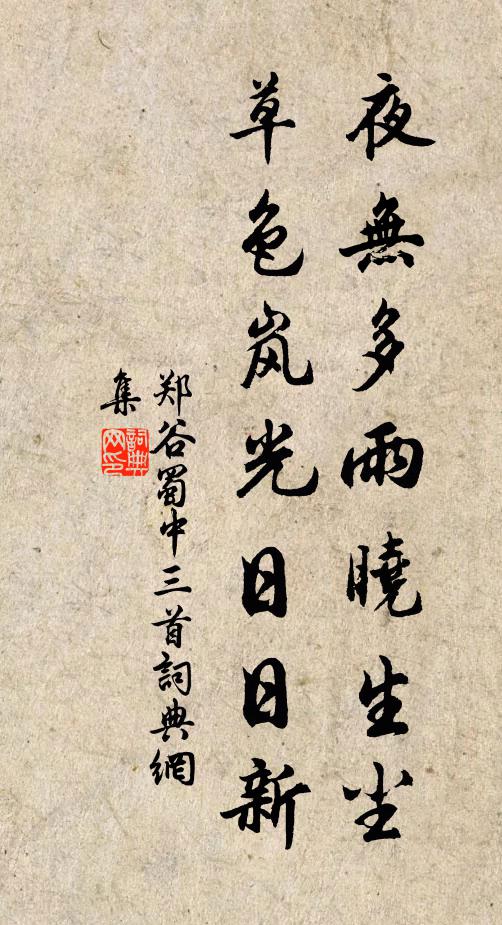 夜無多雨曉生尘
草色岚光日日新
郑谷蜀中三首詞典網
集
詞典网印